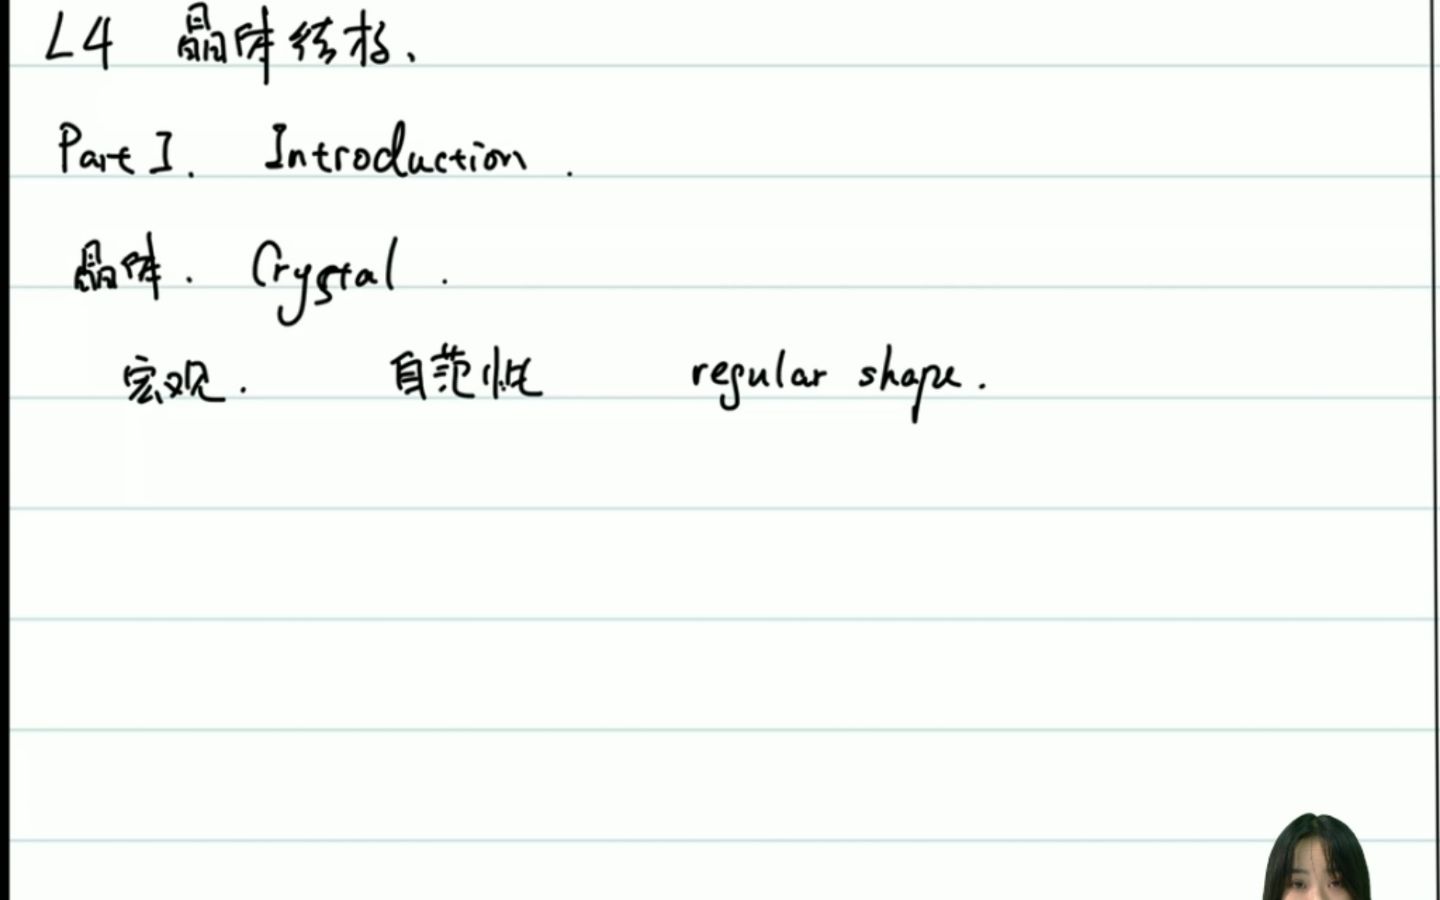 L4 晶体结构.
Part I. Introduction.
晶体. Crystal.
宏观. 自范性 regular shape.